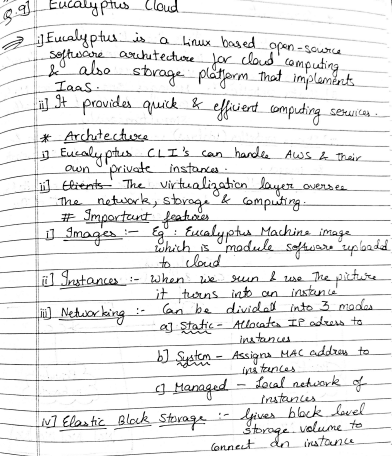 Q.9] Eucalyptus Cloud
⇒ i] Eucalyptus is a Linux based open-source
software architecture for cloud computing
& also storage platform that implements
IaaS.
ii] It provides quick & efficient computing services.
* Architecture
i] Eucalyptus CLI's can handle AWS & their
own private instances.
ii] Clients The virtualization layer oversee
The network, storage & computing.
# Important features
i] Images :- Eg : Eucalyptus Machine image
which is module software uploadd
to cloud
ii] Instances :- When we run & use the picture
it turns into an instance
iii] Networking :- Can be divided into 3 modes
a] Static - Allocates IP adress to
instances
b] System - Assigns MAC address to
instances
c] Managed - Local network of
instances
iv] Elastic Block Storage :- Gives block level
storage volume to
connect an instance